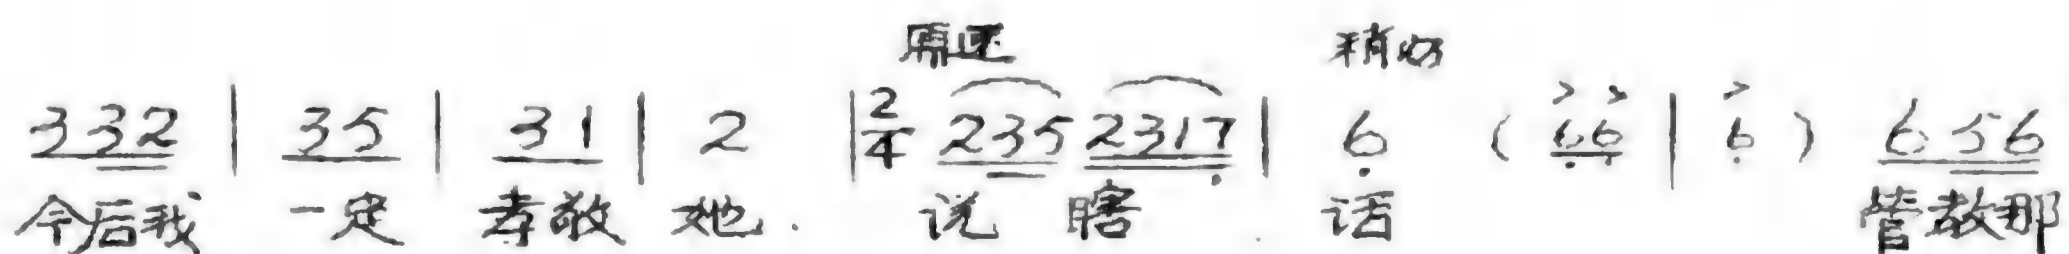 原速 稍切
3 3 2 | 3 5 | 3 1 | 2 | 2/4 2 3 5 2 3 1 7 | 6 ( 6 6 | 6 ) 6 5 6
今后我 一定 孝敬 她. 说 瞎 话 管教那